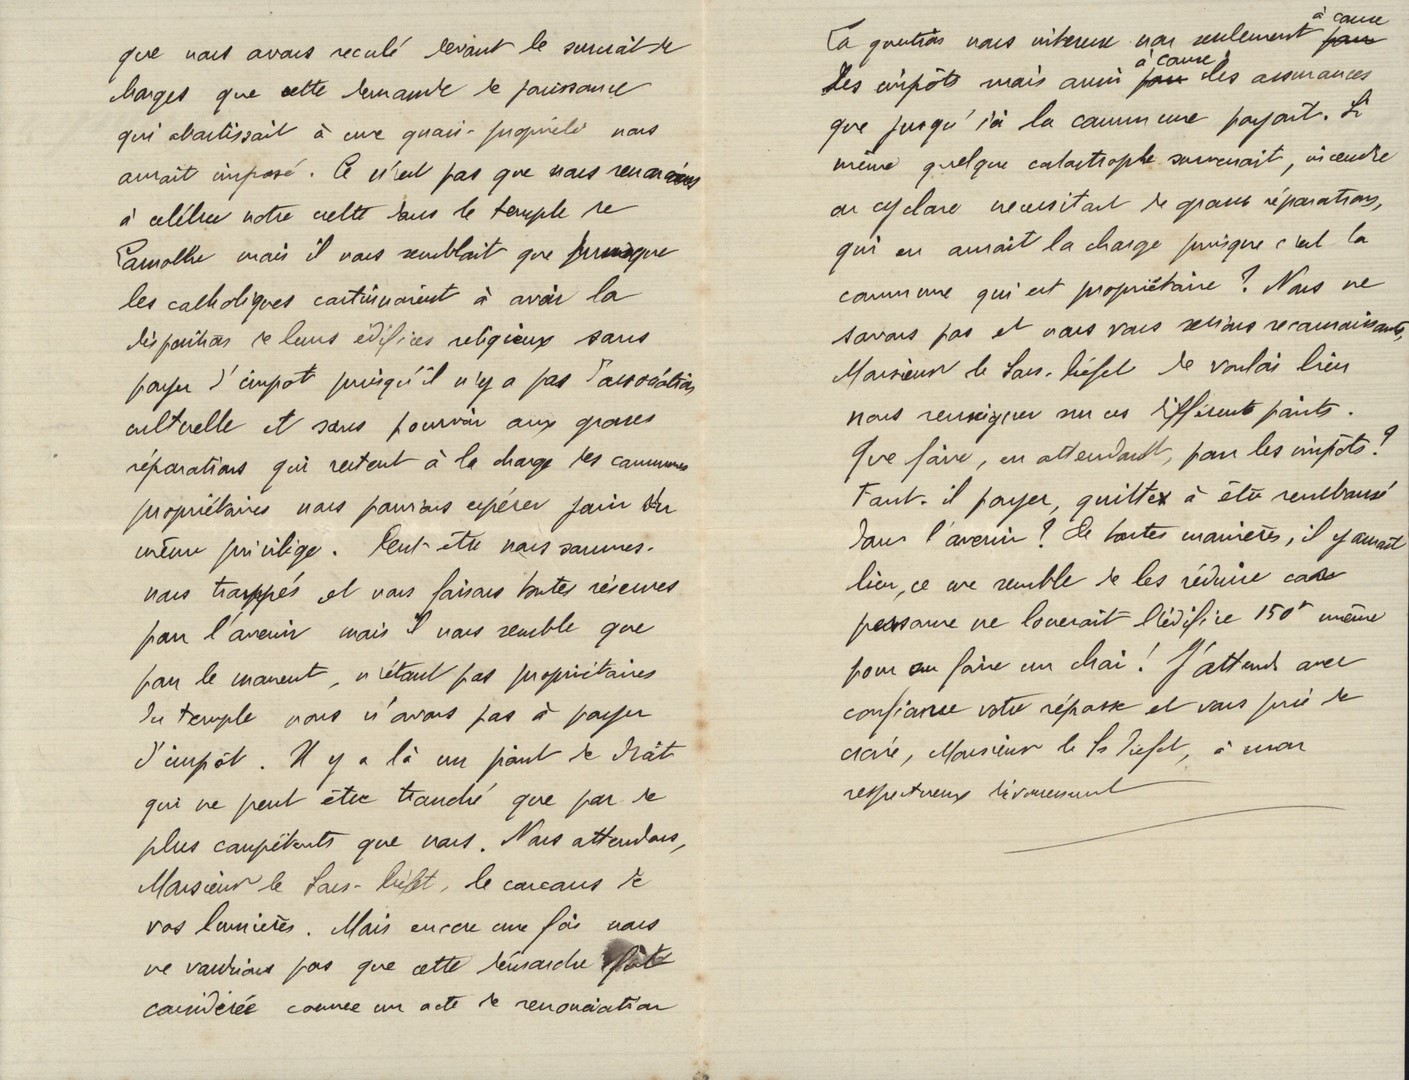 que nous avons reculé devant le surcroît de
charges que cette demande de jouissance
qui aboutissait à une quasi-propriété nous
aurait imposé. Ce n'est pas que nous renoncions
à célébrer notre culte dans le temple de
Lamothe mais il nous semblait que puisque
les catholiques continuaient à avoir la
disposition de leurs édifices religieux sans
payer d'impôt puisqu'il n'y a pas d'association
cultuelle et sans pourvoir aux grosses
réparations qui restent à la charge des communes
propriétaires nous pouvions espérer jouir du
même privilège. Peut-être nous sommes-
nous trompés et nous faisons toutes réserves
pour l'avenir mais il nous semble que
pour le moment, n'étant pas propriétaires
du temple nous n'avons pas à payer
d'impôt. Il y a là un point de droit
qui ne peut être tranché que par de
plus compétents que nous. Nous attendons,
Monsieur le Sous-Préfet, le concours de
vos lumières. Mais encore une fois nous
ne voudrions pas que cette démarche fût
considérée comme un acte de renonciation
La question nous intéresse non seulement à cause pour
des impôts mais aussi à cause pour des assurances
que jusqu'ici la commune payait. Si
même quelque catastrophe survenait, incendie
ou cyclone necessitant de grosses réparations,
qui en aurait la charge puisque c'est la
commune qui est propriétaire ? Nous ne
savons pas et nous vous serions reconnaissants,
Monsieur le Sous-Préfet de vouloir bien
nous renseigner sur ces différents points.
Que faire, en attendant, pour les impôts ?
Faut-il payer, quittes à être remboursé
dans l'avenir ? De toutes manières, il y aurait
lieu, ce me semble de les réduire car
personne ne louerait l'édifice 150f même
pour en faire un chai ! J'attends avec
confiance votre réponse et vous prie de
croire, Monsieur le Ss Préfet, à mon
respectueux dévouement